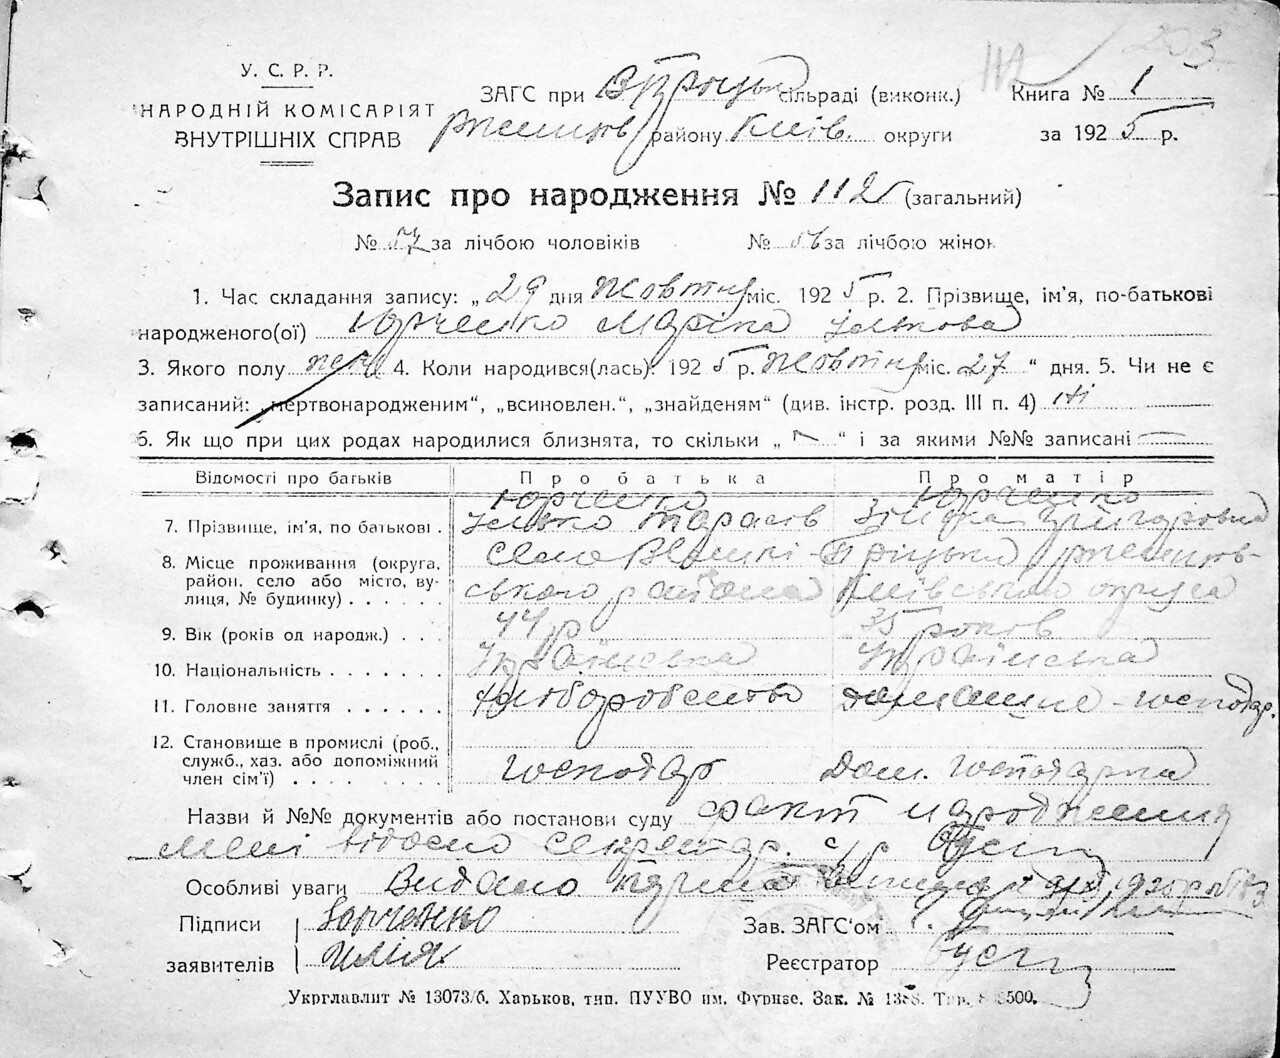 203
У. С. Р. Р.
НАРОДНІЙ КОМІСАРІЯТ
ВНУТРІШНІХ СПРАВ
ЗАГС при В Троцькій сільраді (виконк.) Книга № 1
району Київ. округи за 1925 р.
Запис про народження № 112 (загальний)
№ 57 за лічбою чоловіків № за лічбою жінок
1. Час складання запису: „ 29 дня Жовтня міс. 1925 р. 2. Прізвище, ім'я, по-батькові
народженого(ої) Юрченко Маріка Ількова
3. Якого полу жіно 4. Коли народився(лась): 1925 р. Жовтня міс. 27 “ дня. 5. Чи не є
записаний: „мертвонародженим“, „всиновлен.“, „знайденям“ (див. інстр. розд. III п. 4) ні
6. Як що при цих родах народилися близнята, то скільки „ — “ і за якими №№ записані —
Відомості про батьків Про батька Про матір
Юрченко Юрченко
7. Прізвище, ім'я, по батькові . Ілько Тарасів Зінька Григоровна
8. Місце проживання (округа, район, село або місто, вулиця, № будинку) . . . . . . Село Великі-Пріцьки
ського района Київського округа
9. Вік (років од народж.) . . . 44 р 35 років
10. Національність . . . . . . . Українська Українська
11. Головне заняття . . . . . . Хліборобство домашнє-господар.
12. Становище в промислі (роб.,
служб., хаз. або допоміжний
член сім'ї) . . . . . . . господар дом. господарка
Назви й №№ документів або постанови суду факт народження
мені відомо секретар. с/р
Особливі уваги Видано
Підписи Юрченко Зав. ЗАГС'ом
заявителів Илія. Реєстратор
Укрглавлит № 13073/б. Харьков, тип. ПУУВО им. Фрунзе. Зак. №